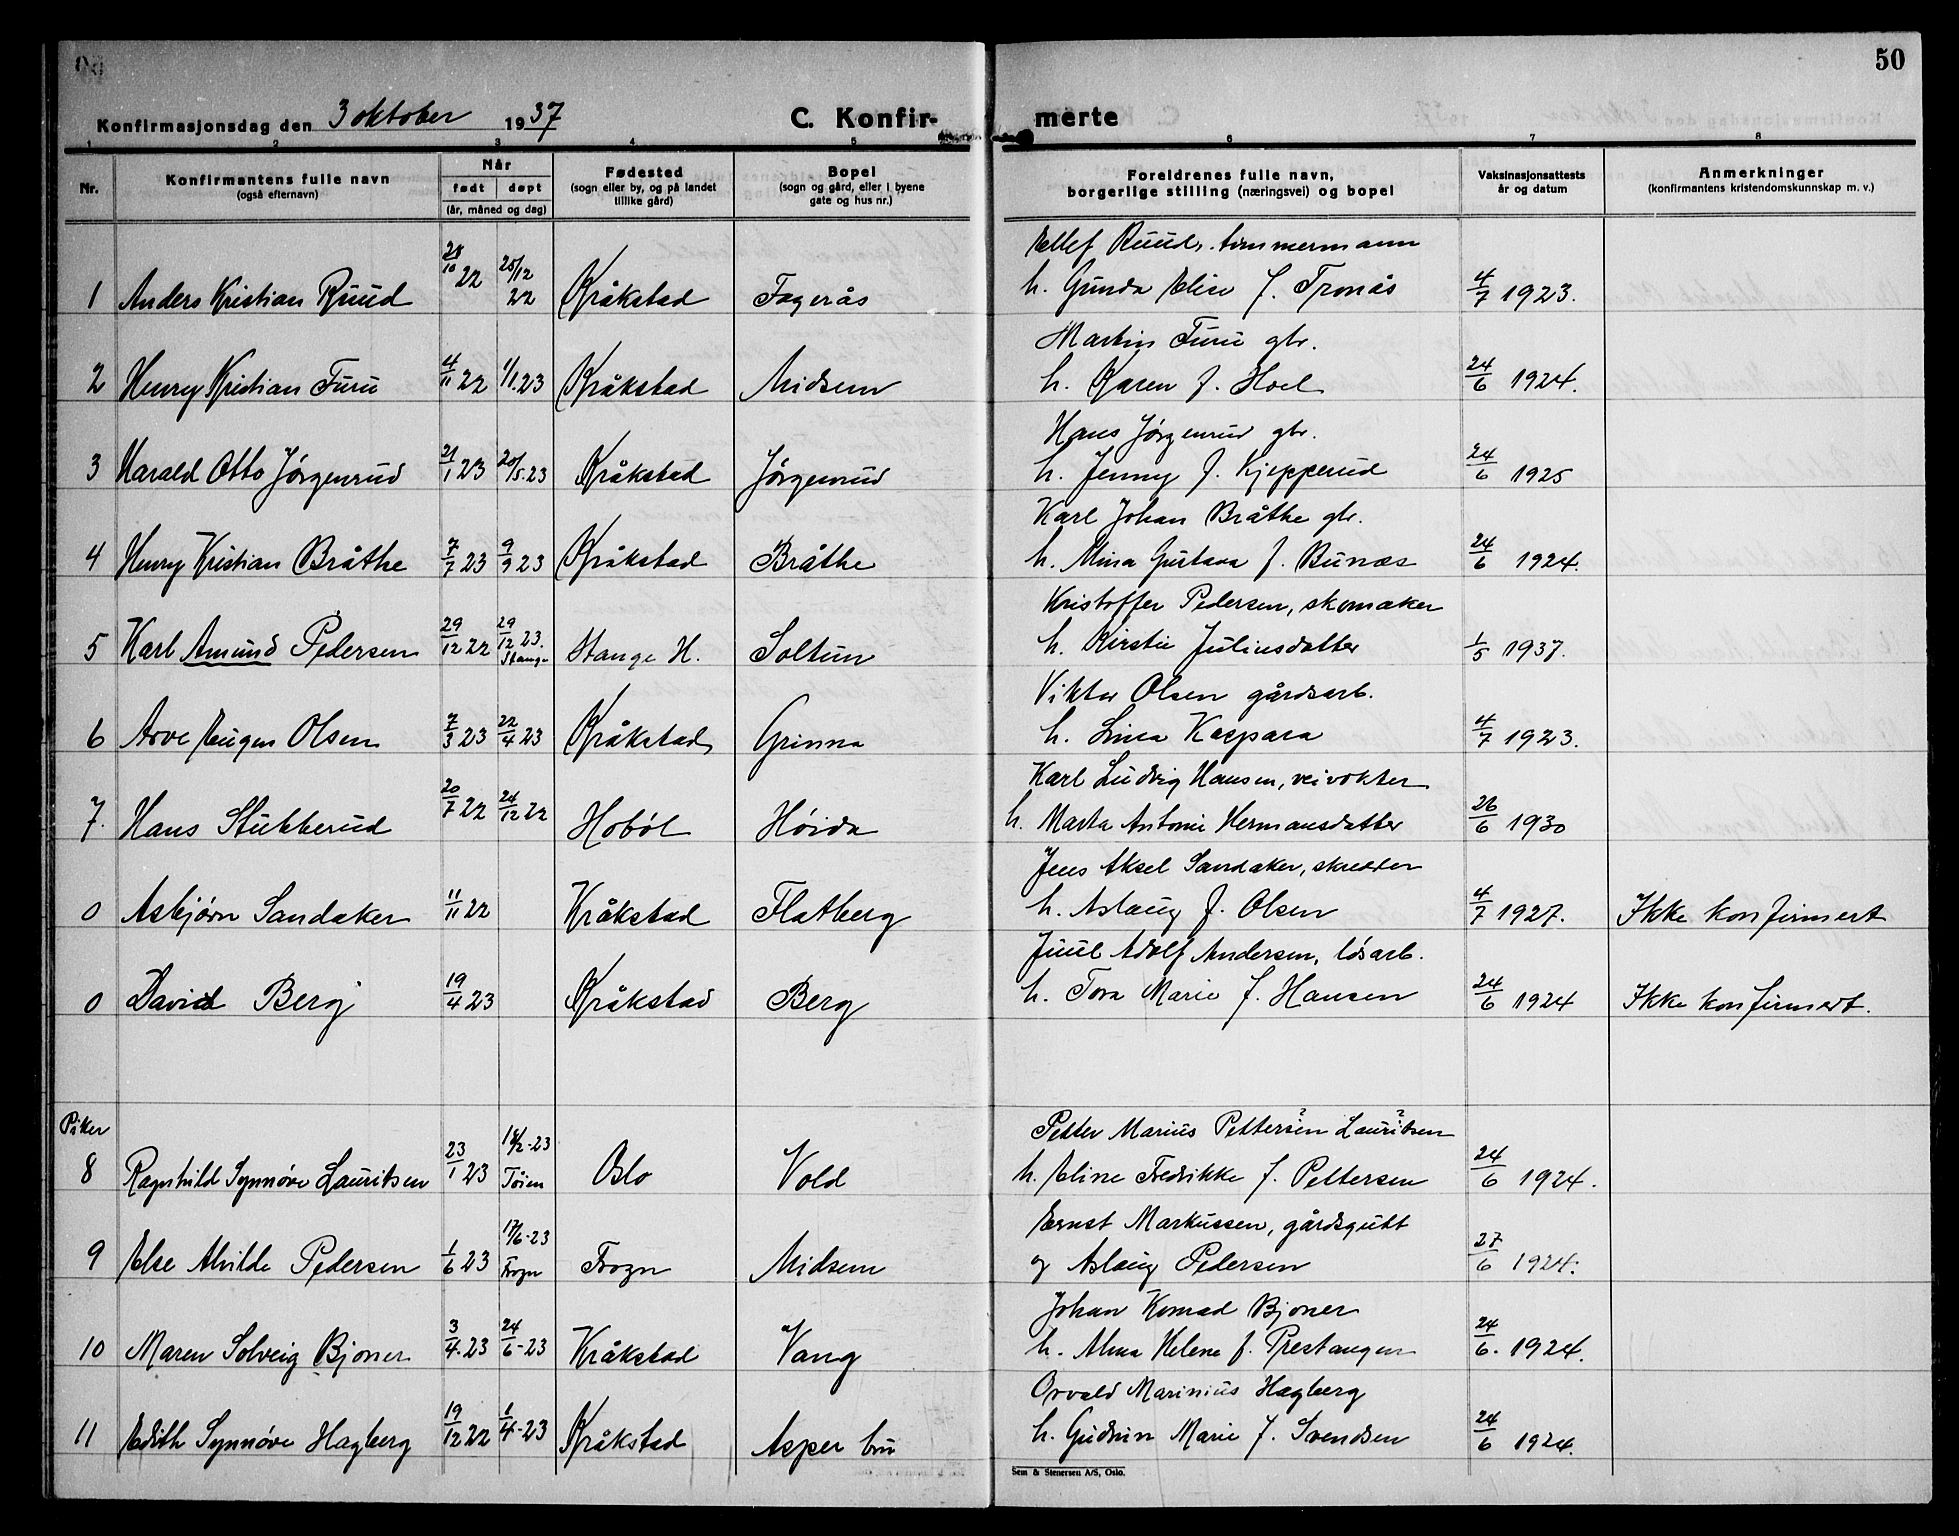 50
Konfirmasjonsdag den 3 oktober 1937
C. Konfir-
merte
1 2 3 4 5 6 7 8
Nr.
Konfirmantens fulle navn
(også efternavn)
Når
født døpt
(år, måned og dag)
Fødested
(sogn eller by, og på landet
tillike gård)
Bopel
(sogn og gård, eller i byene
gate og hus nr.)
Foreldrenes fulle navn,
borgerlige stilling (næringsvei) og bopel
Vaksinasjonsattests
år og datum
Anmerkninger
(konfirmantens kristendomskunnskap m. v.)
Ellef Ruud, tømmermann
1 Anders Kristian Ruud 28/10 22 25/12 22 Kråkstad Fagerås h. Gunda Elise f. Tronås 4/7 1923.
Martin Furu gbr.
2 Henry Kristian Furu 4/11 22 1/1.23 Kråkstad Midsem h. Karen f. Hoel 24/6 1924.
Hans Jørgenrud gbr.
3 Harald Otto Jørgenrud 21/1 23 20/5.23 Kråkstad Jørgenrud h. Jenny f. Kjepperud 24/6 1925
Karl Johan Bråthe gbr.
4 Henry Kristian Bråthe 7/7 23 9/9 23 Kråkstad Bråthe h. Mina Gustava f. Bunæs 24/6 1924.
Kristoffer Pedersen, skomaker
5 Karl Amund Pedersen 29/12 22 29/12 23. Stange Stange H. Soltun h. Kirstie Juliusdatter 1/5 1937.
Viktor Olsen gårdsarb.
6 Arve Eugen Olsen 7/3 23 22/4 23 Kråkstad Grinna h. Lina Kaspara 4/7 1923.
Karl Ludvig Hansen, veivokter
7. Hans Stubberud 20/7 22 24/12 22 Hobøl Høida h. Marta Antonie Hermansdatter 26/6 1930
Jens Aksel Sandaker, skredder
0 Asbjørn Sandaker 11/11 22 Kråkstad Flatberg h. Aslaug f. Olsen 4/7 1927. Ikke konfirmert
Juul Adolf Andersen, løsarb.
0 David Berg 19/4 23 Kråkstad Berg h. Tora Marie f. Hansen 24/6 1924 Ikke konfirmert.
Piker
Petter Marius Pettersen? Lauritsen?
8 Ragnhild Synnøve Lauritsen 23/1 23 18/2-23 Tøien Oslo Vold h. Eline Fredrikke f. Pettersen 24/6 1924.
Ernst Markussen, gårdsgutt
9 Else Alvilde Pedersen 1/6 23 17/6-23 Frogn Frogn Midsem og Aslaug Pedersen 27/6 1924.
Johan Konrad Bjoner
10 Maren Solveig Bjoner 3/4.23 24/6-23 Kråkstad Vang h. Alma Helene f. Prestangen 24/6. 1924.
Orvald Marinius Hagberg
11 Edith Synnøve Hagberg 19/12 22 1/4-23 Kråkstad Asper bru h. Gudrun Marie f. Svendsen 24/6 1924.
Sem & Stenersen A/S, Oslo.